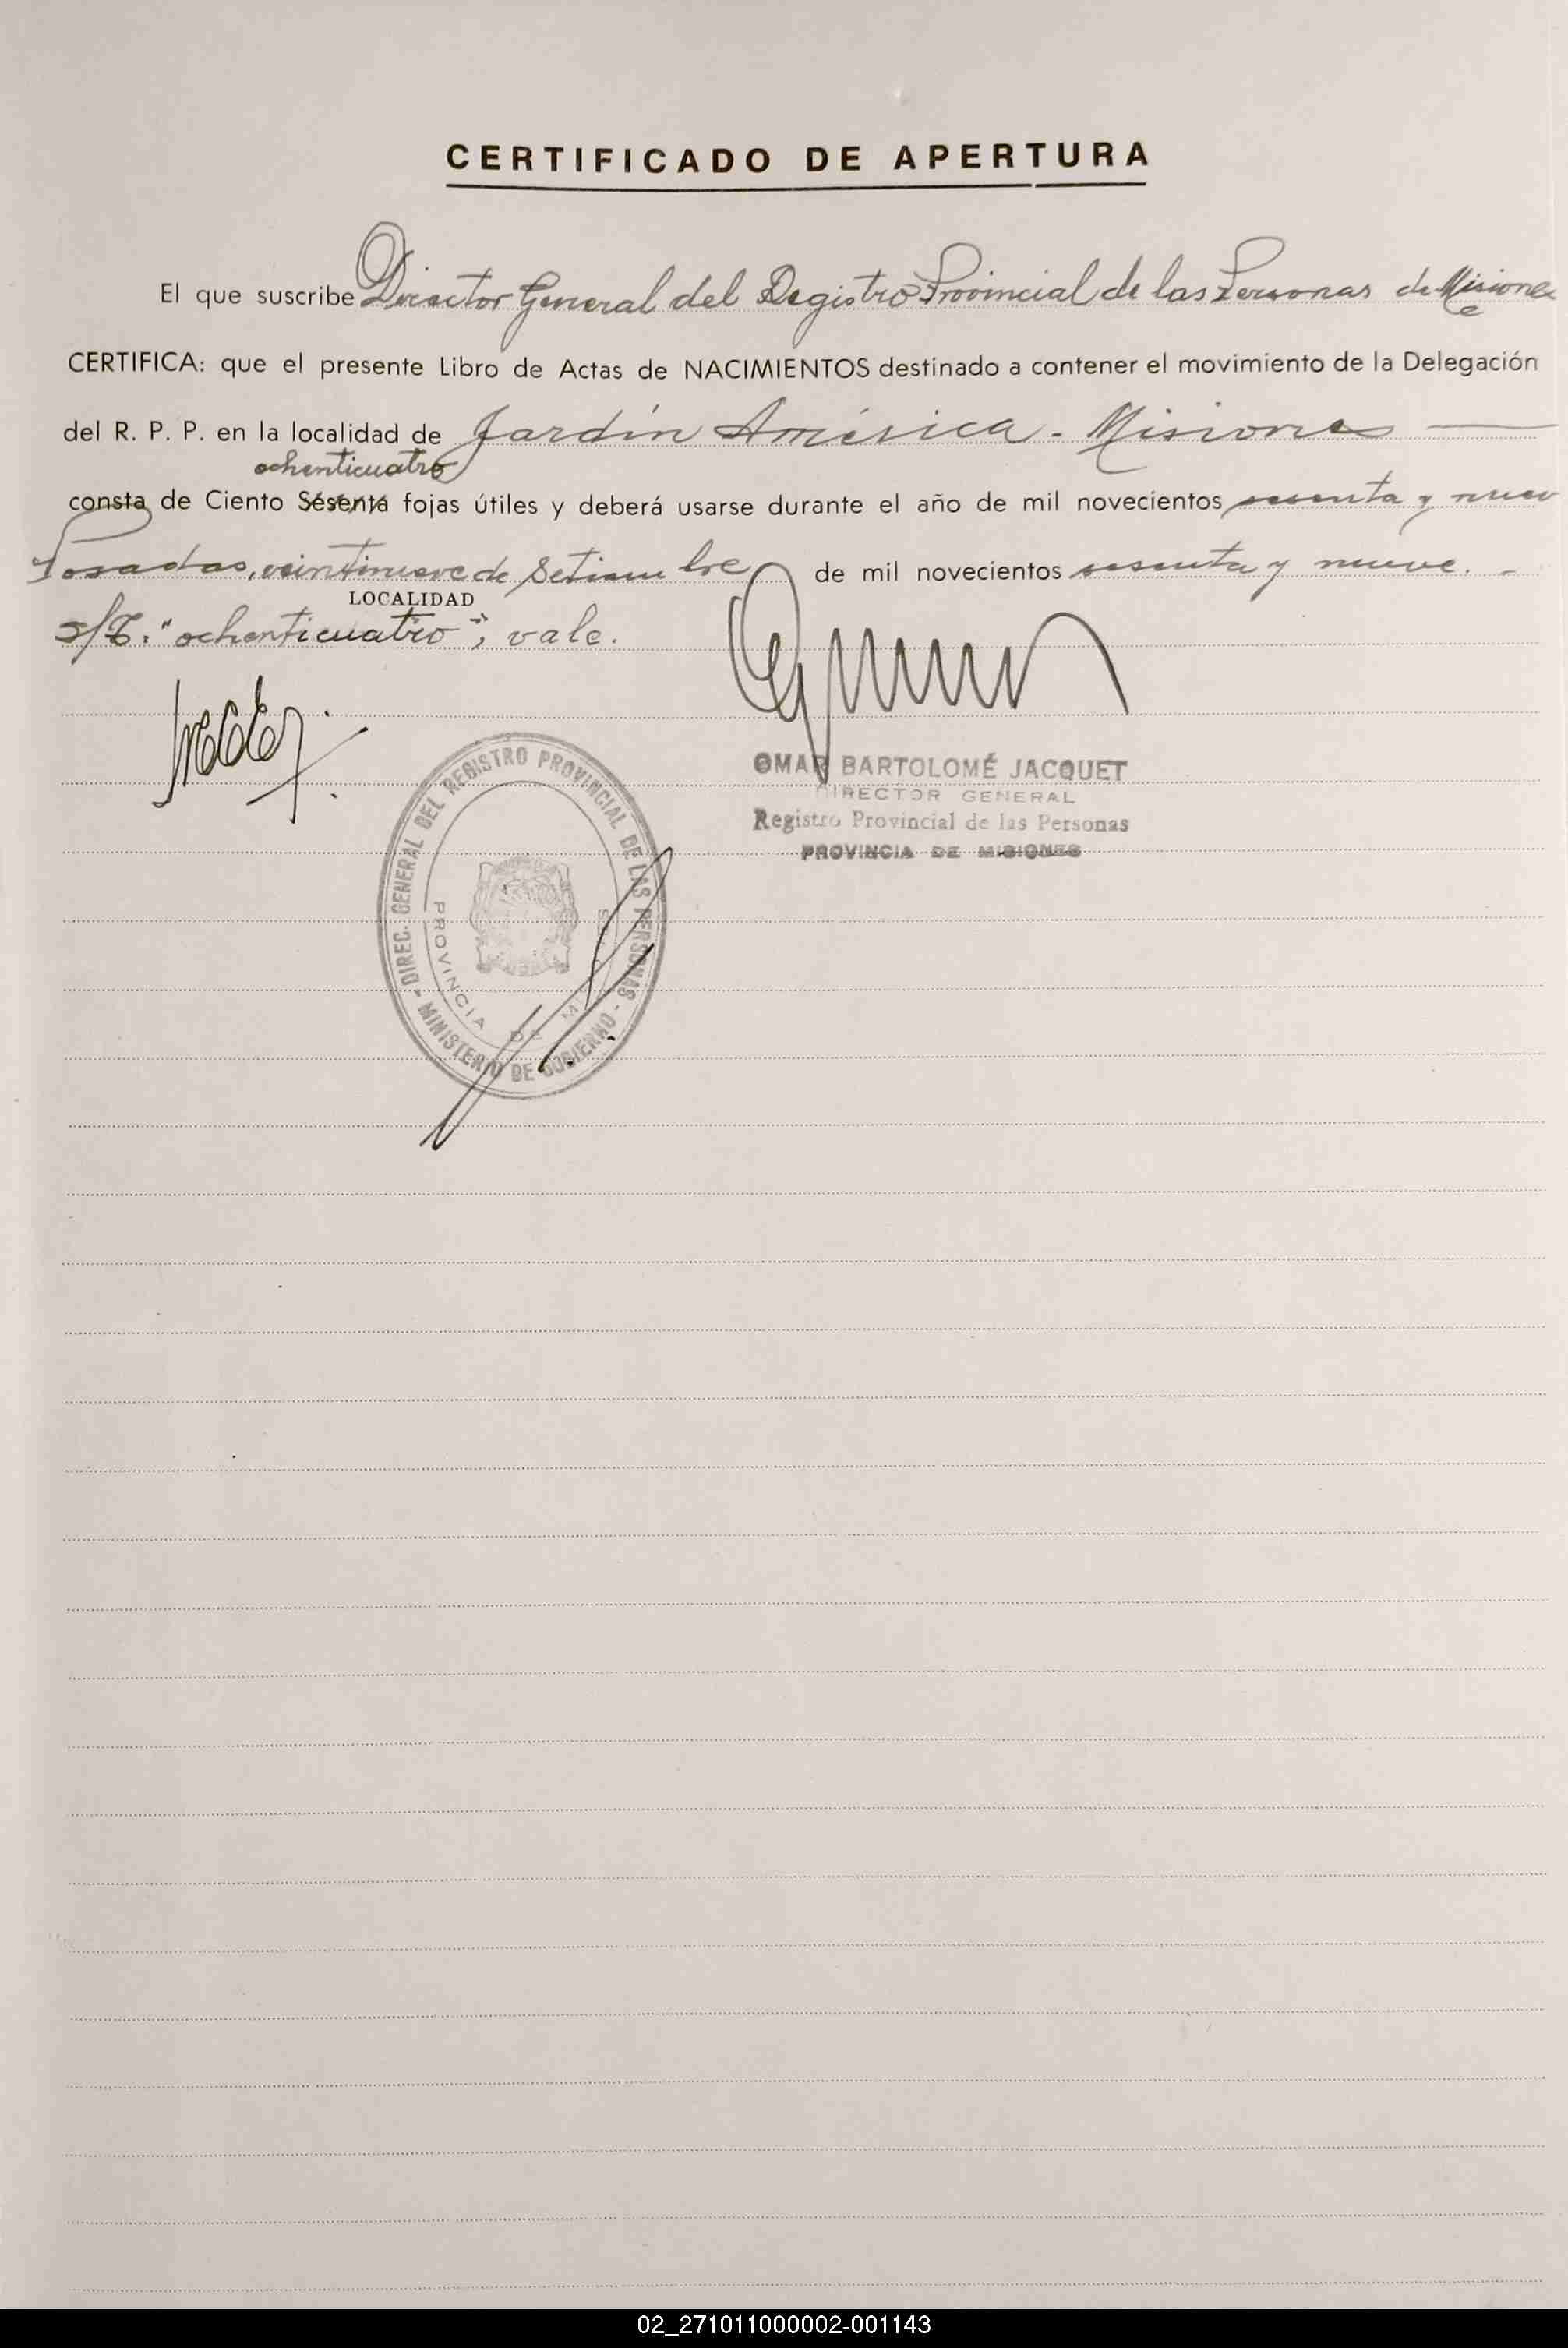 CERTIFICADO DE APERTURA
El que suscribe Director General del Registro Provincial de las Personas de Misiones
CERTIFICA: que el presente Libro de Actas de NACIMIENTOS destinado a contener el movimiento de la Delegación
del R. P. P. en la localidad de Jardín América - Misiones
ochenticuatro
consta de Ciento Sesenta fojas útiles y deberá usarse durante el año de mil novecientos sesenta y nueve
Posadas, veintinueve de Setiembre de mil novecientos sesenta y nueve. -
LOCALIDAD
s/t: "ochenticuatro"; vale.
OMAR BARTOLOMÉ JACQUET
DIRECTOR GENERAL
Registro Provincial de las Personas
PROVINCIA DE MISIONES
DIREC. GENERAL DEL REGISTRO PROVINCIAL DE LAS PERSONAS
- MINISTERIO DE GOBIERNO -
PROVINCIA DE MISIONES
02_271011000002-001143